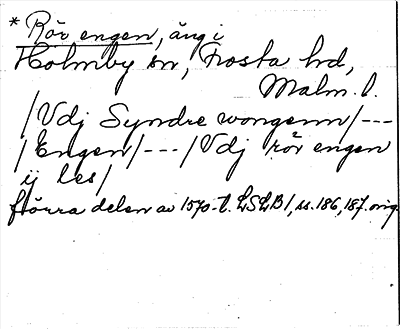 * Rör engen, äng i
Holmby sn, Frosta hd,
Malm. l.
/Vdj Syndre wongenn/---
/Engen/---/Vdj rör engen
ij les/
förra delen av 1570-t. LSLB 1, ss. 186, 187. orig.